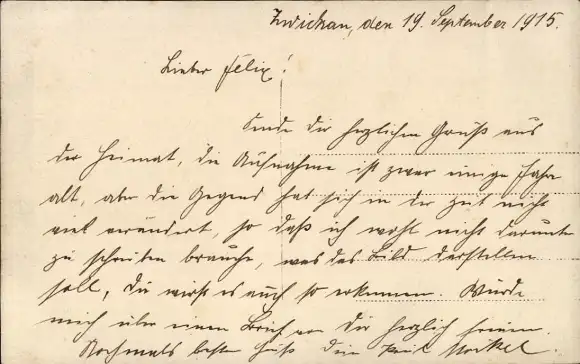 Zwickau, den 19. September 1915.
Lieber Felix!
Sende dir herzlichen Gruß aus
der Heimat, die Aufnahme ist zwar einige Jahre
alt, aber die Gegend hat sich in der Zeit nicht
viel verändert, so daß ich wohl nicht darunter
zu schreiben brauche, was das Bild darstellen
soll, Du wirst es auch so erkennen. Würde
mich über einen Brief von Dir herzlich freuen.
Nochmals besten Gruß dein